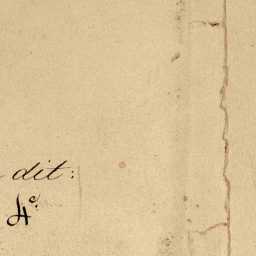 dit:
4º.